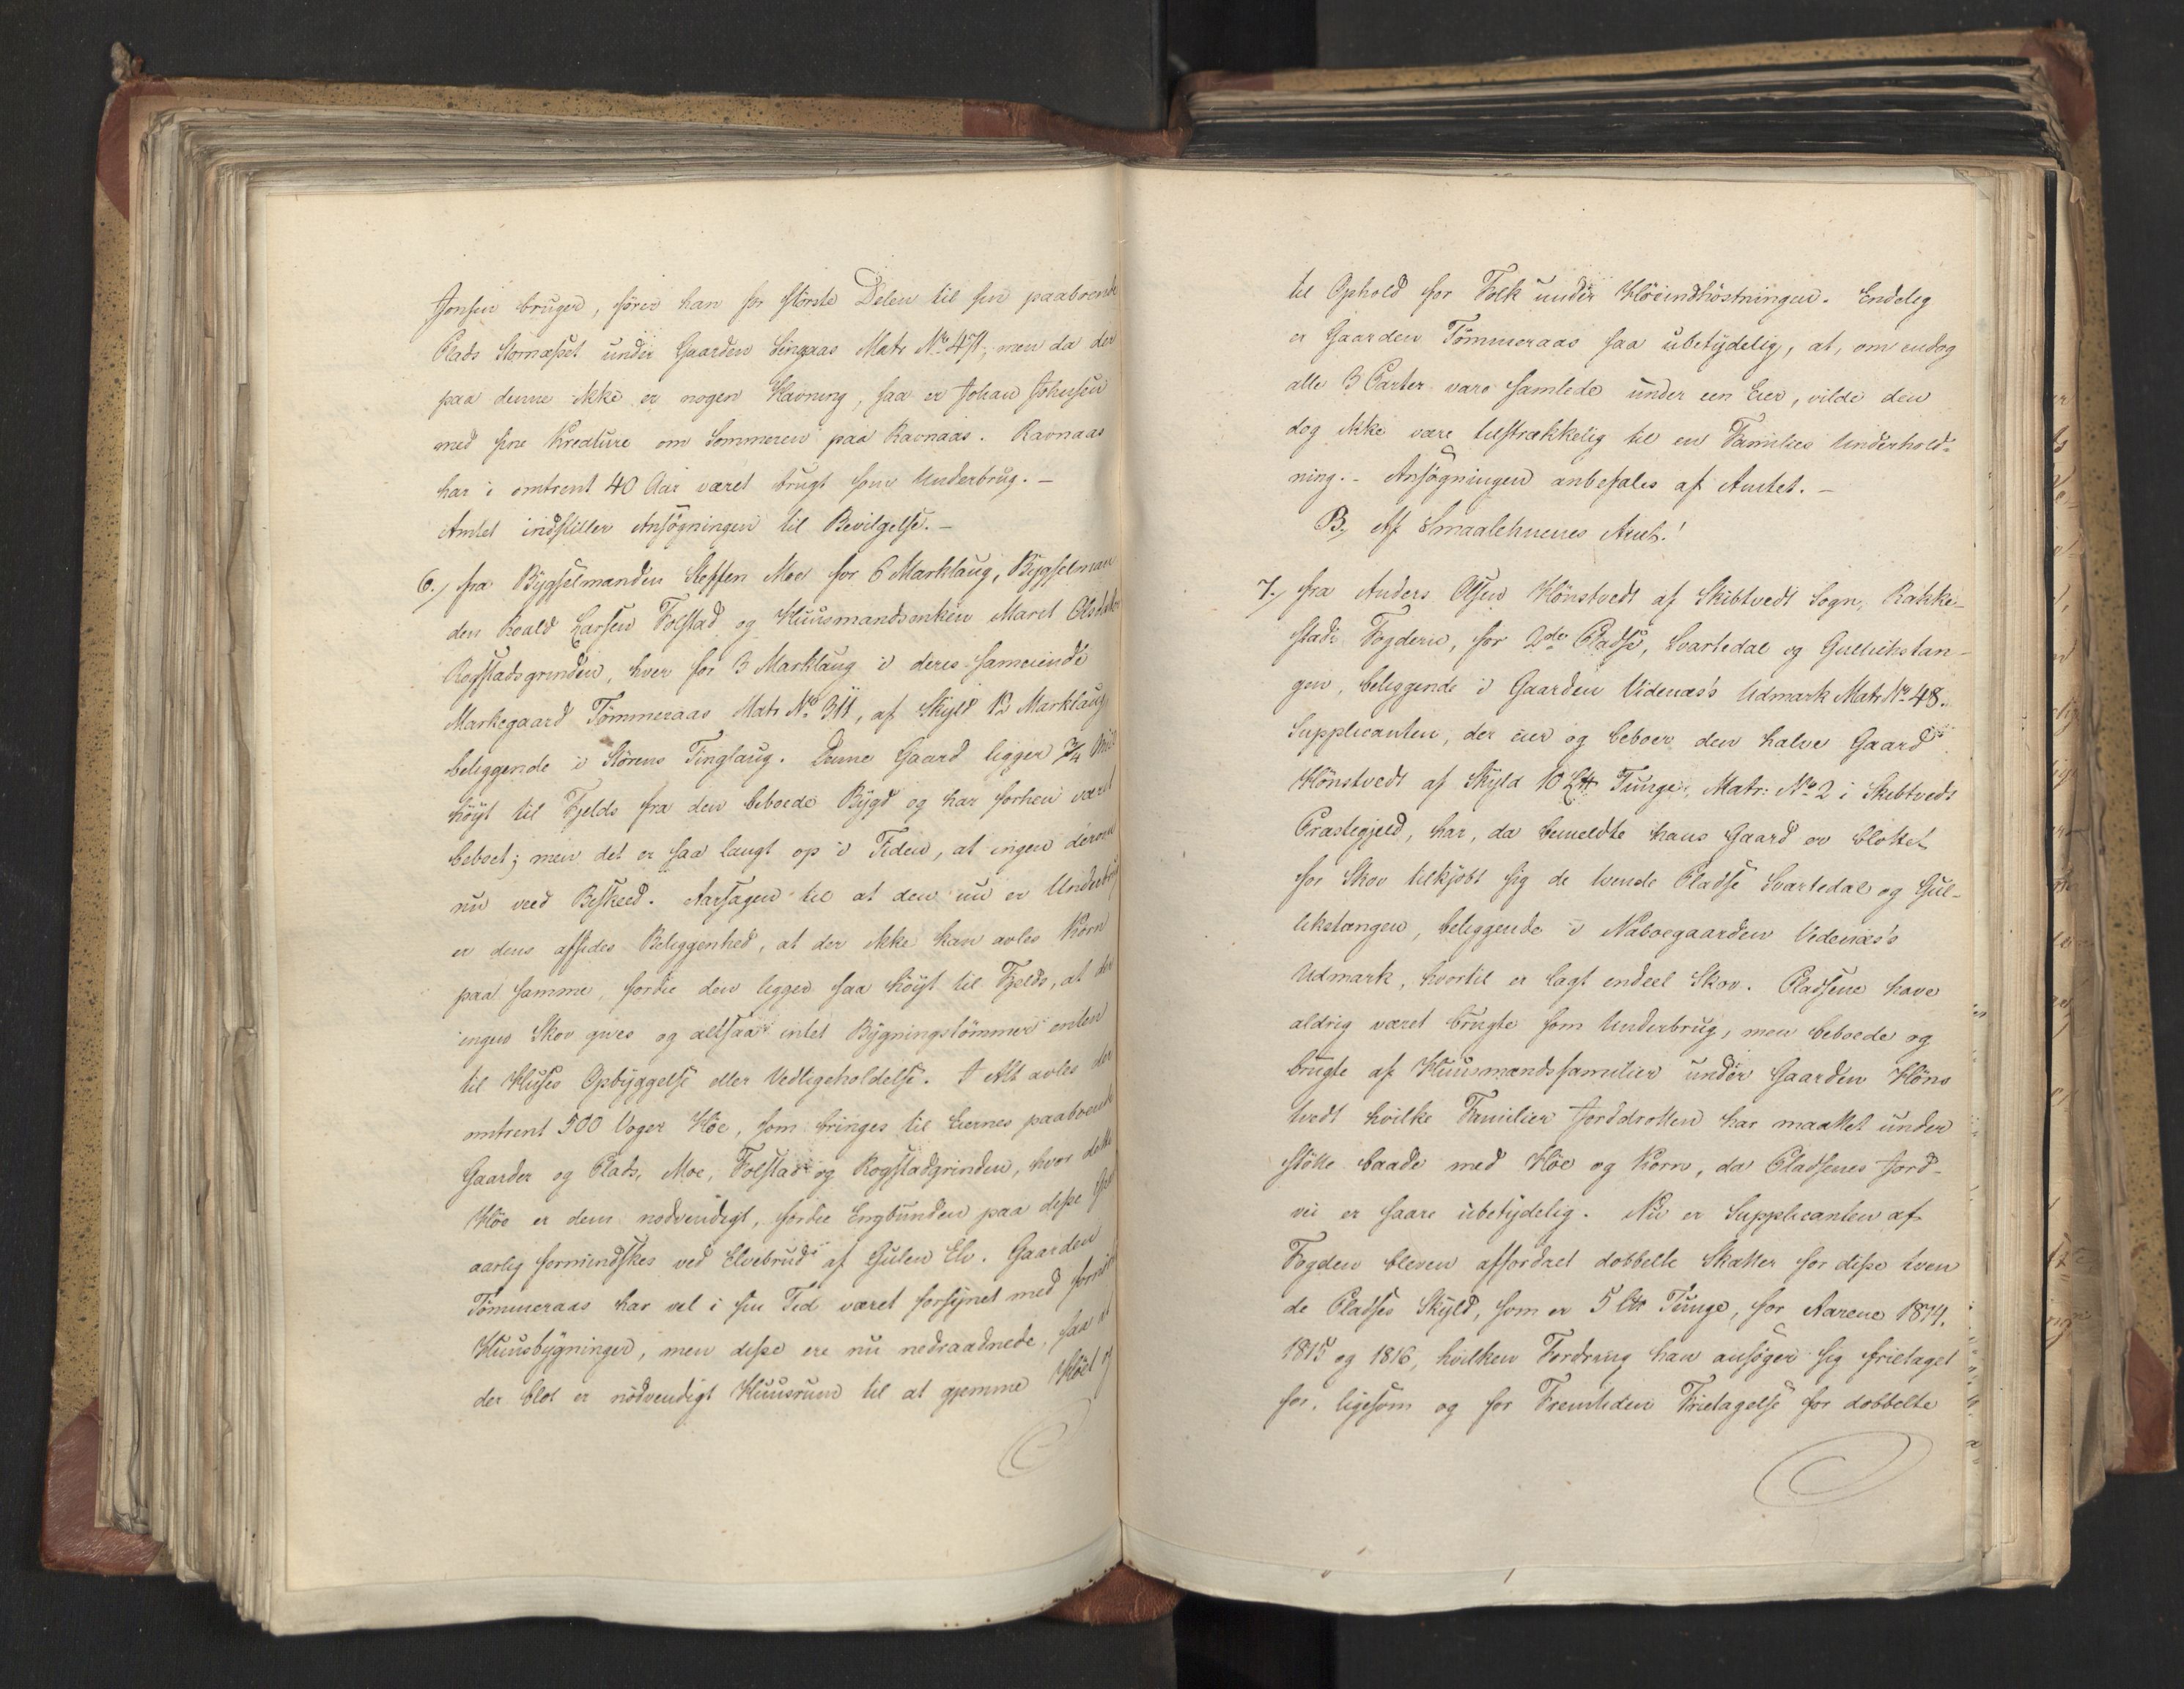 Jonsen bruger, fører han for største Delen til sin paaboende
Plads Stornæsset under Gaarden Singsaas Matr No 471, men da der
paa denne ikke er nogen Havning, saa er Johan Johnsen
med sine Kreature om Sommeren paa Ravnaas. Ravnaas
har i omtrent 40 Aar været brugt som Underbrug. –
Amtet indstiller Ansøgningen til Bevilgelse. –
6./ fra Bygselmanden Steffen Moe for 6 Marklaug, Bygselman
den Roald Larsen Folstad og Huusmandsenken Marit
Rogstadsgrinden, hver for 3 Marklaug i deres sameiende
Markegaard Tømmeraas Matr No 311, af Skyld 12 Marklaug
beliggende i Størens Tinglaug. Denne Gaard ligger 3/4 Miil
høyt til Fjelds fra den beboede Bygd og har forhen været
beboet; men det er saa langt op i Tiden, at ingen derom
nu veed Beskeed. Aarsagen til at den nu er Underbrug
er dens afsides Beliggenhed, at der ikke kan avles Korn
paa samme, fordie den ligger saa høyt til Fjelds, at der
ingen Skov gives og altsaa intet Bygningstømmer enten
til Huses Opbyggelse eller Vedligeholdelse. I Alt avles der
omtrent 500 Voger Høe, som bringes til Eiernes paaboende
Gaarder og Plads, Moe, Folstad og Rogstadgrinden, hvor dette
Høe er dem nødvendigt, fordie Engbunden paa disse
aarlig formindskes ved Elvebrud af Gulen Elv. Gaarden
Tømmeraas har vel i sin Tid været forsynet med
Huusbygninger, men disse ere nu nedraadnede, saa at
der blot er nødvendigt Huusrum til at gjemme Høet og
til Ophold for Folk under Høeindhøstningen. Endelig
er Gaarden Tømmeraas saa ubetydelig, at, om endog
alle 3 Parter vare samlede under een Eier, vilde den
dog ikke være tilstrækkelig til en Families Underhold-
ning. – Ansøgningen anbefales af Amtet. –
B., Af Smaalehnenes Amt.
7./ fra Anders Olsen Hönstvedt af Skibtvedt Sogn, Rakke-
stads Fogderie, for 2de Pladse, Svartedal og Gullichstan-
gen, beliggende i Gaarden Videnæs's Udmark Matr No 48.
Supplicanten, der eier og beboer den halve Gaard
Hönstvedt af Skyld 10 L℔ Tunge, Matr: No 2 i Skibtvedt
Præstegjeld, har, da bemeldte hans Gaard er blottet
for Skov tilkjøbt sig de tvende Pladse Svartedal og Gul-
likstangen, beliggende i Naboegaarden Videnæs's
Udmark, hvortil er lagt endeel Skov. Pladsene have
aldrig været brugte som Underbrug, men beboede og
brugte af Huusmandsfamilier under Gaarden Höns
tvedt hvilke Familier Jorddrotten har maattet under
støtte baade med Høe og Korn, da Pladsenes Jord-
vei er saare ubetydelig. Nu er Supplicanten af
Fogden bleven affordret dobbelte Skatter for disse tven
de Pladses Skyld, som er 5 L℔ Tunge, for Aarene 1814.
1815 og 1816, hvilken Fordring han ansøger sig frietaget
for, ligesom og for Fremtiden Frietagelse for dobbelte